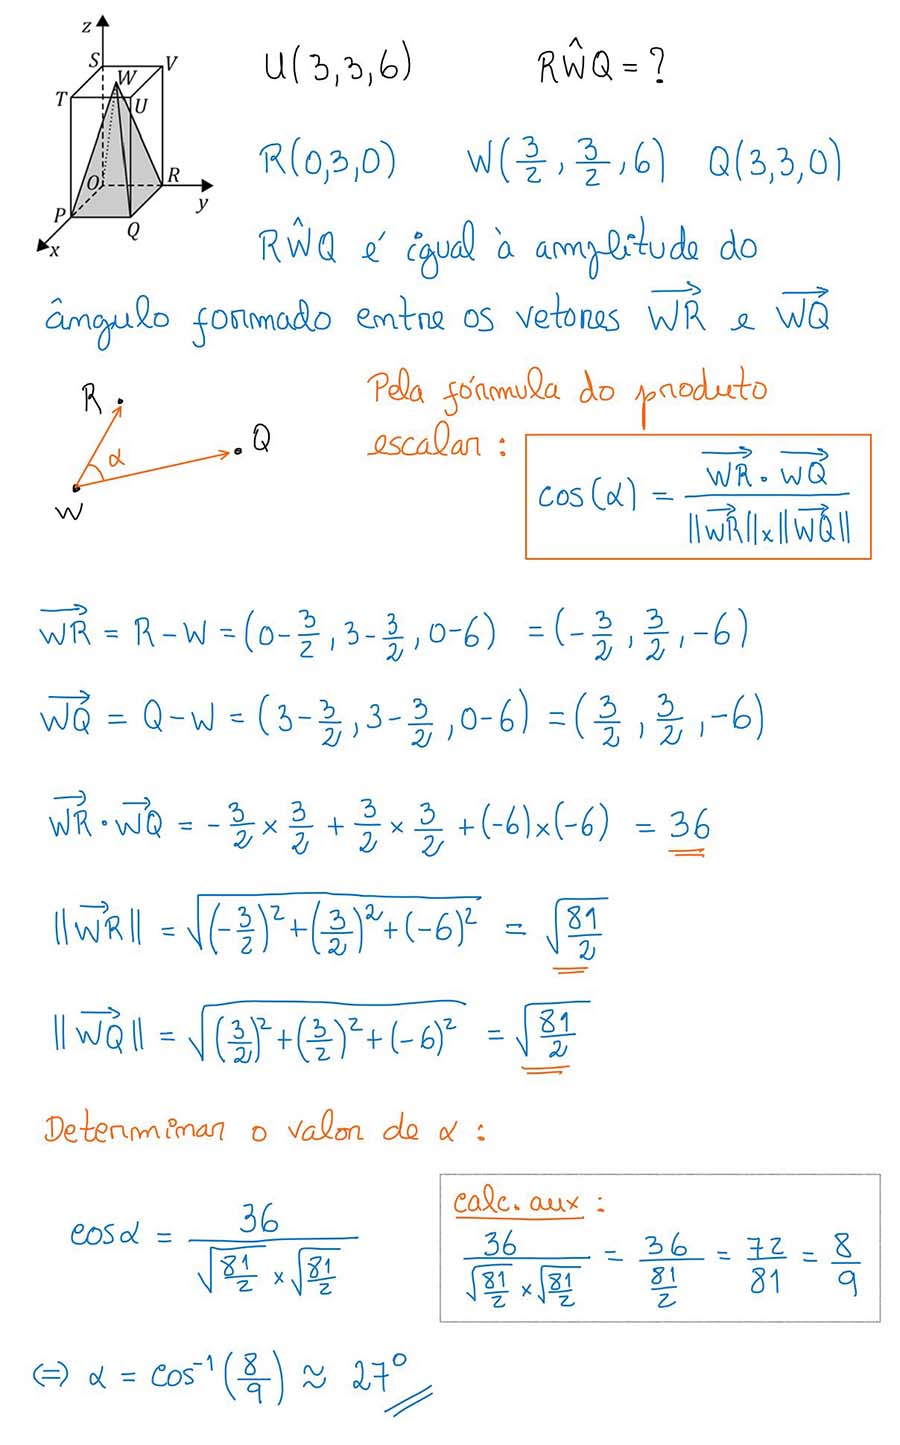 z
S V
W
T U
O R
y
P
Q
x
U(3,3,6) RŴQ = ?
R(0,3,0) W(3/2, 3/2, 6) Q(3,3,0)
RŴQ é igual à amplitude do
ângulo formado entre os vetores WR⃗ e WQ⃗
R
Q
α
W
Pela fórmula do produto
escalar :
cos(α) = (WR⃗ · WQ⃗) / (||WR⃗|| x ||WQ⃗||)
WR⃗ = R - W = (0 - 3/2, 3 - 3/2, 0 - 6) = (-3/2, 3/2, -6)
WQ⃗ = Q - W = (3 - 3/2, 3 - 3/2, 0 - 6) = (3/2, 3/2, -6)
WR⃗ · WQ⃗ = -3/2 × 3/2 + 3/2 × 3/2 + (-6)×(-6) = 36
||WR⃗|| = √((-3/2)² + (3/2)² + (-6)²) = √(81/2)
||WQ⃗|| = √((3/2)² + (3/2)² + (-6)²) = √(81/2)
Determinar o valor de α :
cos α = 36 / (√(81/2) × √(81/2))
calc. aux :
36 / (√(81/2) × √(81/2)) = 36 / (81/2) = 72/81 = 8/9
(=) α = cos⁻¹(8/9) ≈ 27°